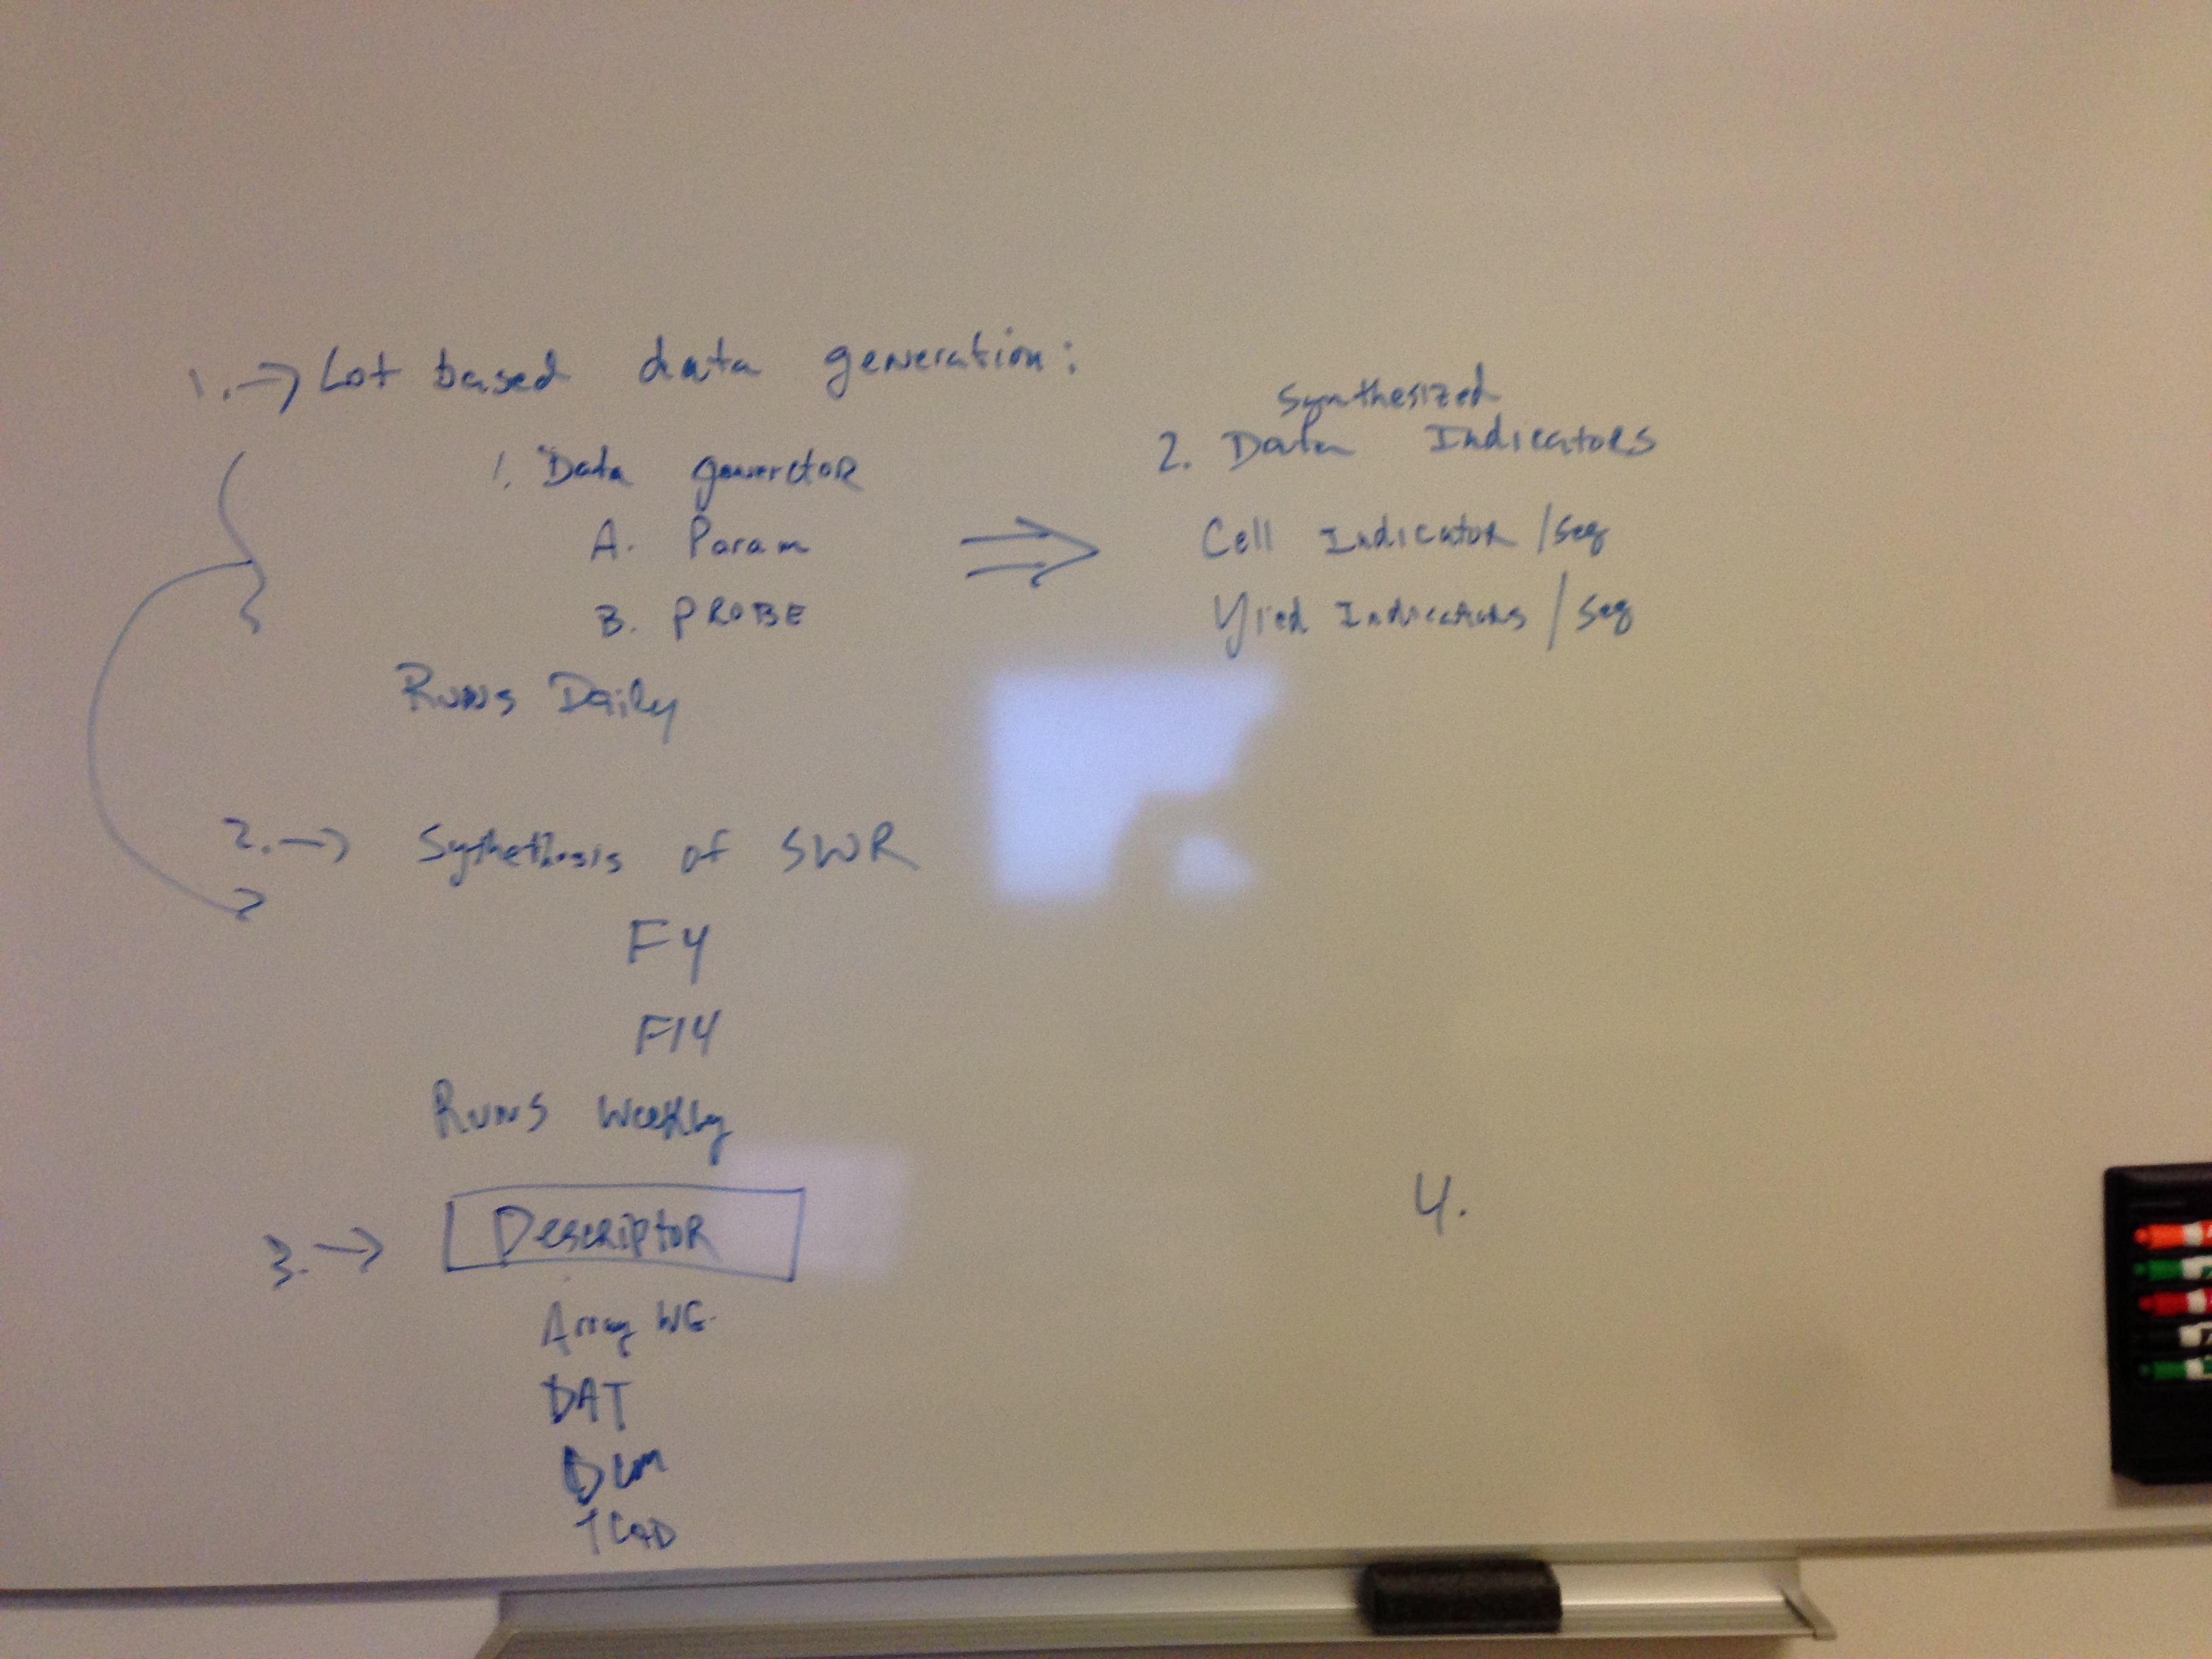 1. → Lot based data generation:
1. Data generator
A. Param
B. PROBE
Runs Daily
Synthesized
2. Data Indicators
Cell Indicator / Seg
Yied Indicators / Seg
2. → Sythethosis of SWR
F4
F14
Runs Weekly
3. → Descriptor
Array
DAT
TCAD
4.